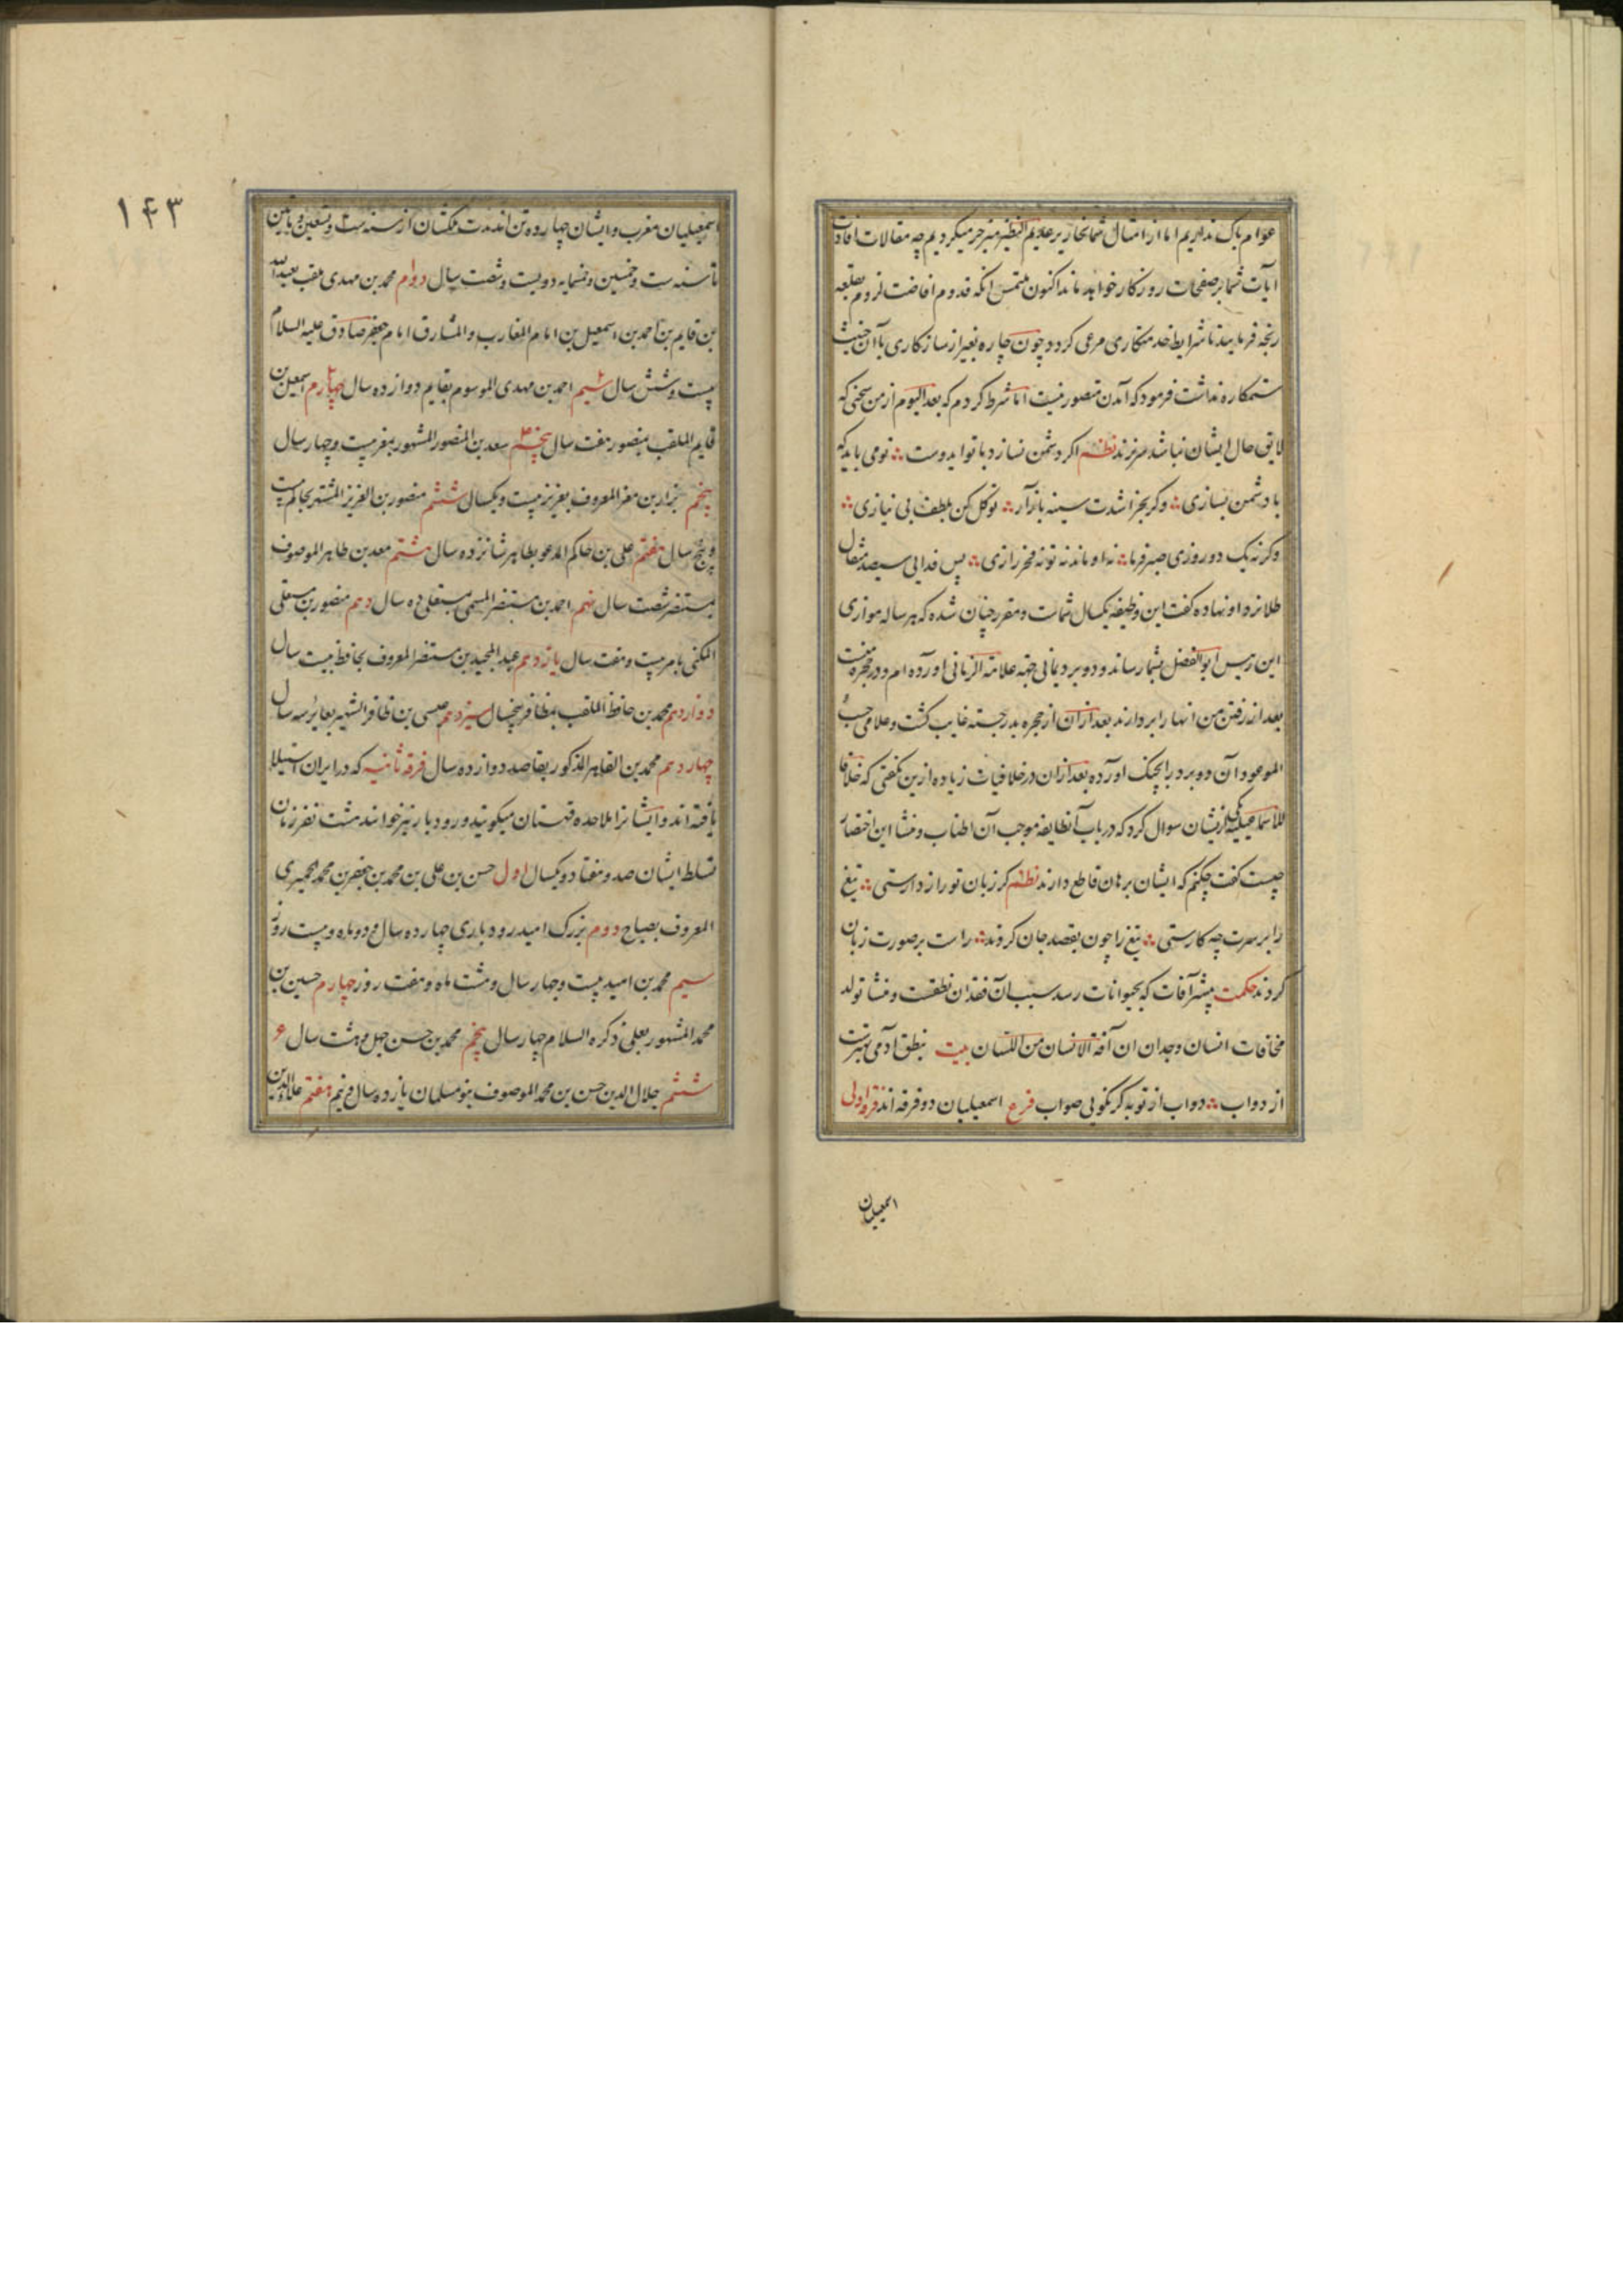 عوام باک نداریم اما از امثال شما نحاریر عدیم النظیر منزجر میکردیم چه مقالات افادت
آیات شما بر صفحات روزکار خواهد ماند اکنون ملتمس آنکه قدوم افاضت لزوم بقلعه
رنجه فرمایید تا شرایط خدمتکاری مرعی کردد چون چاره بغیر از سازکاری با آن خبیث
ستمکاره نداشت فرمود که آمدن متصور نیست اما شرط کردم که بعد الیوم از من سخنی که
لایق حال ایشان نباشد سر نزند نظم اکر دشمن نسازد با تو ایدوست ؞ تو می باید که
با دشمن بسازی ؞ وکر بخراشدت سینه باز آر ؞ توکل کن بلطف بی نیازی ؞
وکرنه یک دو روزی صبر فرما ؞ نه او ماند نه تو نه فخر رازی ؞ پس فدایی سیصد مثقال
طلا نزد او نهاده کفت این وظیفه یکسال شماست و مقرر چنان شده که هر ساله موازی
این رییس ابو الفضل بشما رساند و دو برد یمانی جهة علامة الزمانی آورده ام و در حجره منست
بعد از رفتن من آنها را بردارند بعد از آن از حجره بدر جسته غایب کشت و علامی حسب
الموعود آن دو برد را بچنک آورده بعد از آن در خلافیات زیاده ازین نکفتی که خلافا
للاسماعیلیه یکی از ایشان سوال کرد که در باب آنطایفه موجب آن اطناب و منشا این اختصار
چیست کفت چکنم که ایشان برهان قاطع دارند نظم کر زبان تو رازدارستی ؞ تیغ
را بر سرت چه کارستی ؞ تیغ را چون بقصد جان کروند ؞ راست بر صورت زبان
کردند حکمت بیشتر آفات که بحیوانات رسد سبب آن فقدان نطقست و منشا تولد
مخافات انسان وجدان آن آفة الانسان من اللسان بیت بنطق آدمی بهترست
از دواب ؞ دواب از تو به کر نکویی صواب فرع اسمعیلیان دو فرقه اند فرقه اولی
اسمعیلیان
۱۴۳
اسمعیلیان مغرب و ایشان چهارده تن اند مدت ملکشان از سنه ست و تسعین و مایتین
تا سنه ست و خمسین و خمسمایه دویست و شصت سال دوام محمد بن مهدی ملقب بعبدالله
بن قایم بن احمد بن اسمعیل بن امام المغارب و المشارق امام جعفر صادق علیه السلام
بیست و شش سال سیم احمد بن مهدی الموسوم بقایم دوازده سال چهارم اسمعیل بن
قایم الملقب بمنصور هفت سال پنجم سعد بن المنصور المشهور بمعز بیست و چهار سال
پنجم نزار بن معز المعروف بعزیز بیست و یکسال ششم منصور بن العزیز المشتهر بحاکم بیست
و پنج سال هفتم علی بن حاکم المدعو بطاهر شانزده سال هشتم معد بن طاهر الموصوف
بمستنصر شصت سال نهم احمد بن مستنصر المسمی بمستعلی ده سال دهم منصور بن مستعلی
المکنی بامر بیست و هفت سال یازدهم عبد المجید بن مستنصر المعروف بحافظ بیست سال
دوازدهم محمد بن حافظ الملقب بظافر پنجسال سیزدهم عیسی بن ظافر الشهیر بعایز سه سال
چهاردهم محمد بن القاهر المذکور بقاصد دوازده سال فرقه ثانیه که در ایران استیلا
یافته اند و ایشانرا ملاحده قهستان میکویند و رودبار نیز خوانند هشت نفرند زمان
تسلط ایشان صد و هفتاد و یکسال اول حسن بن علی بن محمد بن جعفر بن محمد الحمیری
المعروف بصباح دوم بزرک امید رودباری چهارده سال و دو ماه و بیست روز
سیم محمد بن امید بیست و چهار سال و هشت ماه و هفت روز چهارم حسین بن
محمد المشهور بعلی ذکره السلام چهار سال پنجم محمد بن حسن چهل و هشت سال ۶
ششم جلال الدین حسن بن محمد الموصوف بنو مسلمان یازده سال و نیم هفتم علاء الدین